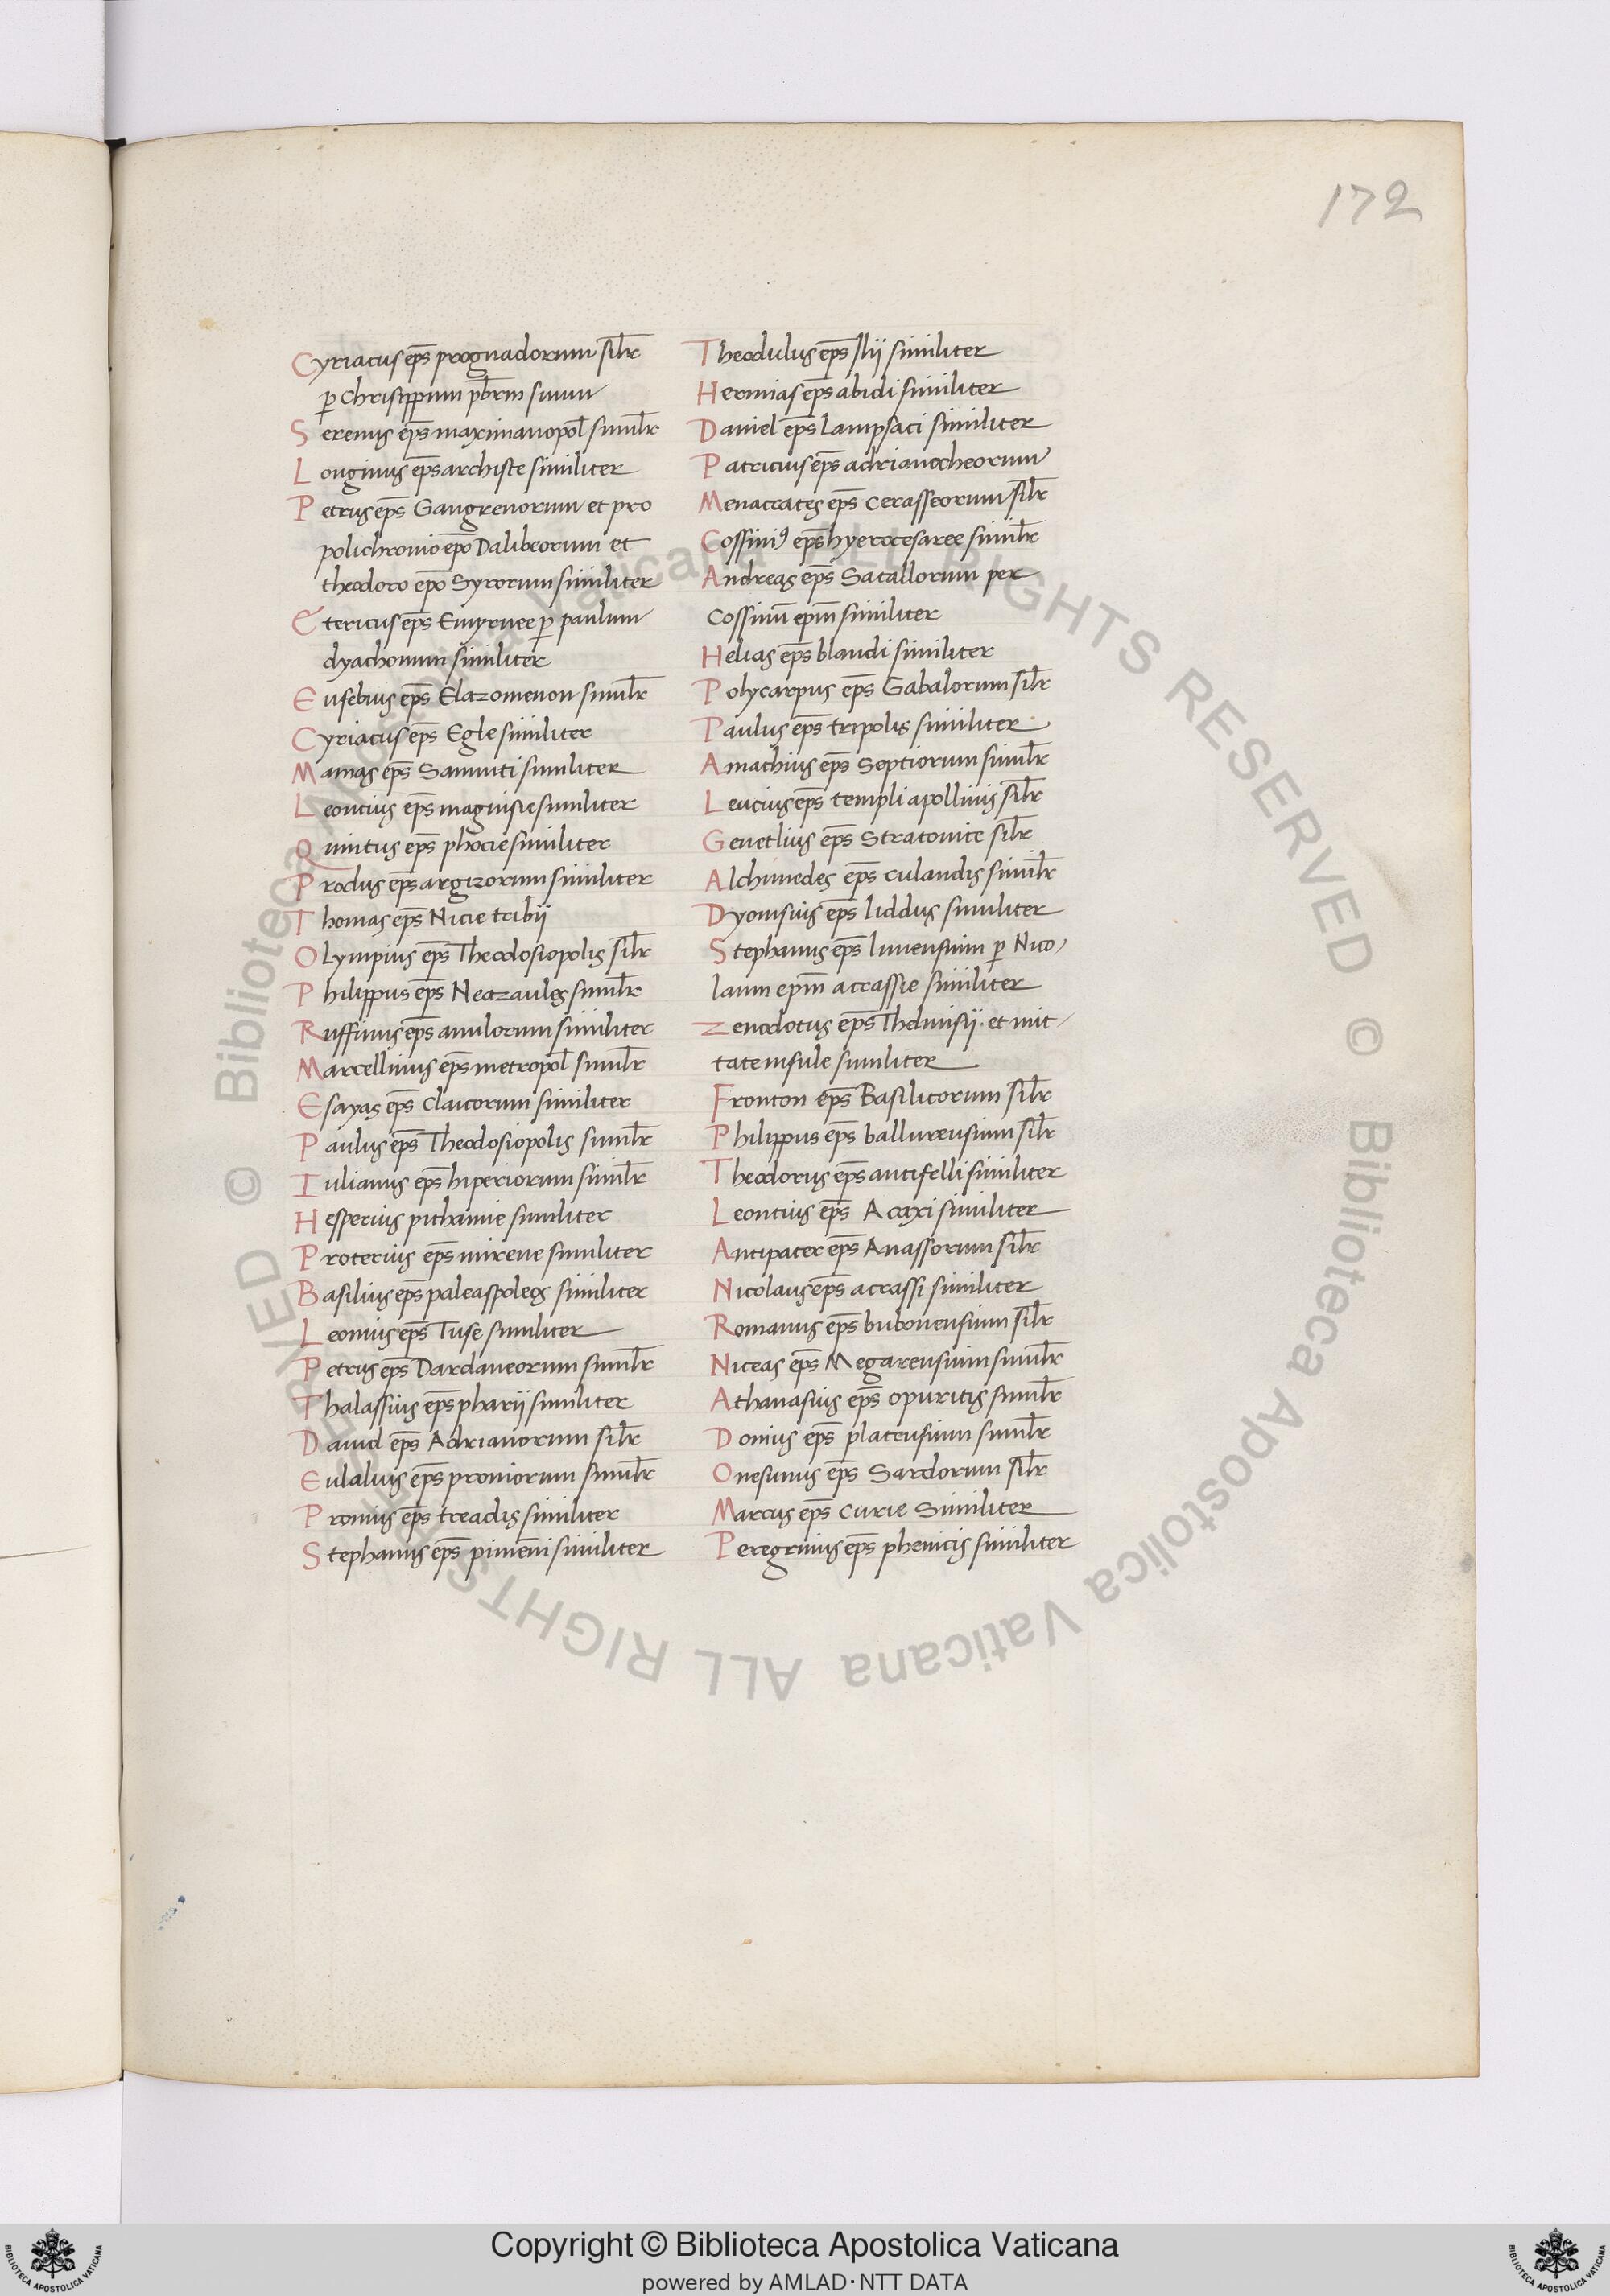 172
Cyriacus ep̄s prognadorum sil̄r
ꝑ Chrisippum pb̄rm suum
Serenus ep̄s maximianopol̄ simil̄r
Longinus ep̄s archiste similiter
Petrus ep̄s Gangrenorum et pro
polichronio ep̄o Dalibeorum et
theodoro ep̄o Syrorum similiter
Etericus ep̄s Emyrnee ꝑ paulum
dyachonum similiter
Eusebius ep̄s Elazomenon simil̄r
Cyriacus ep̄s Egle similiter
Mamas ep̄s Sanniti similiter
Leontius ep̄s magnisie similiter
Quintus ep̄s phocie similiter
Proclus ep̄s argizorum similiter
Thomas ep̄s Nicie tribij
Olympius ep̄s Theodosiopolis sil̄r
Philippus ep̄s Neazaules simil̄r
Ruffinus ep̄s anulorum similiter
Marcellinus ep̄s metropol̄ simil̄r
Esayas ep̄s claitorum similiter
Paulus ep̄s Theodosiopolis simil̄r
Iulianus ep̄s hiperiorum simil̄r
Hesperius pithanie similiter
Proterius ep̄s mirene similiter
Basilius ep̄s paleaspoleos similiter
Leonius ep̄s Tuse similiter
Petrus ep̄s Dardaneorum simil̄r
Thalassius ep̄s pharij similiter
Dauid ep̄s Adrianorum sil̄r
Eulalius ep̄s proniorum simil̄r
Pronius ep̄s treadis similiter
Stephanus ep̄s pimeni similiter
Theodulus ep̄s Ilij similiter
Hermias ep̄s abidi similiter
Daniel ep̄s Lampsaci similiter
Patricius ep̄s adrianotheorum
Menacrates ep̄s cerasseorum sil̄r
Cossiniꝰ ep̄s hyerocesaree simil̄r
Andreas ep̄s Satallorum per
Cossinū ep̄m similiter
Helias ep̄s blandi similiter
Polycarpus ep̄s Gabalorum sil̄r
Paulus ep̄s tripolis similiter
Amachius ep̄s Soptiorum simil̄r
Leucius ep̄s templi apollinis sil̄r
Genetlius ep̄s Stratonice sil̄r
Alchimedes ep̄s culandis simil̄r
Dyonisius ep̄s liddus similiter
Stephanus ep̄s limensium ꝑ Nico
laum ep̄m acrassie similiter
Zenodotus ep̄s Thelmisij. et mit
tate insule similiter
Fronton ep̄s Basilitorum sil̄r
Philippus ep̄s ballurensium sil̄r
Theodorus ep̄s antifelli similiter
Leontius ep̄s Araxi similiter
Antipater ep̄s Anassorum sil̄r
Nicolaus ep̄s acrassi similiter
Romanus ep̄s bubonensium sil̄r
Niceas ep̄s Megarensium simil̄r
Athanasius ep̄s opuritis simil̄r
Donius ep̄s platensium simil̄r
Onesimus ep̄s Sardorum sil̄r
Marcus ep̄s curie Similiter
Peregrinus ep̄s phenicis similiter
© Biblioteca Apostolica Vaticana ALL RIGHTS RESERVED © Biblioteca Apostolica Vaticana ALL RIGHTS RESERVED
Copyright © Biblioteca Apostolica Vaticana
powered by AMLAD·NTT DATA
BIBLIOTECA APOSTOLICA VATICANA
BIBLIOTECA APOSTOLICA VATICANA